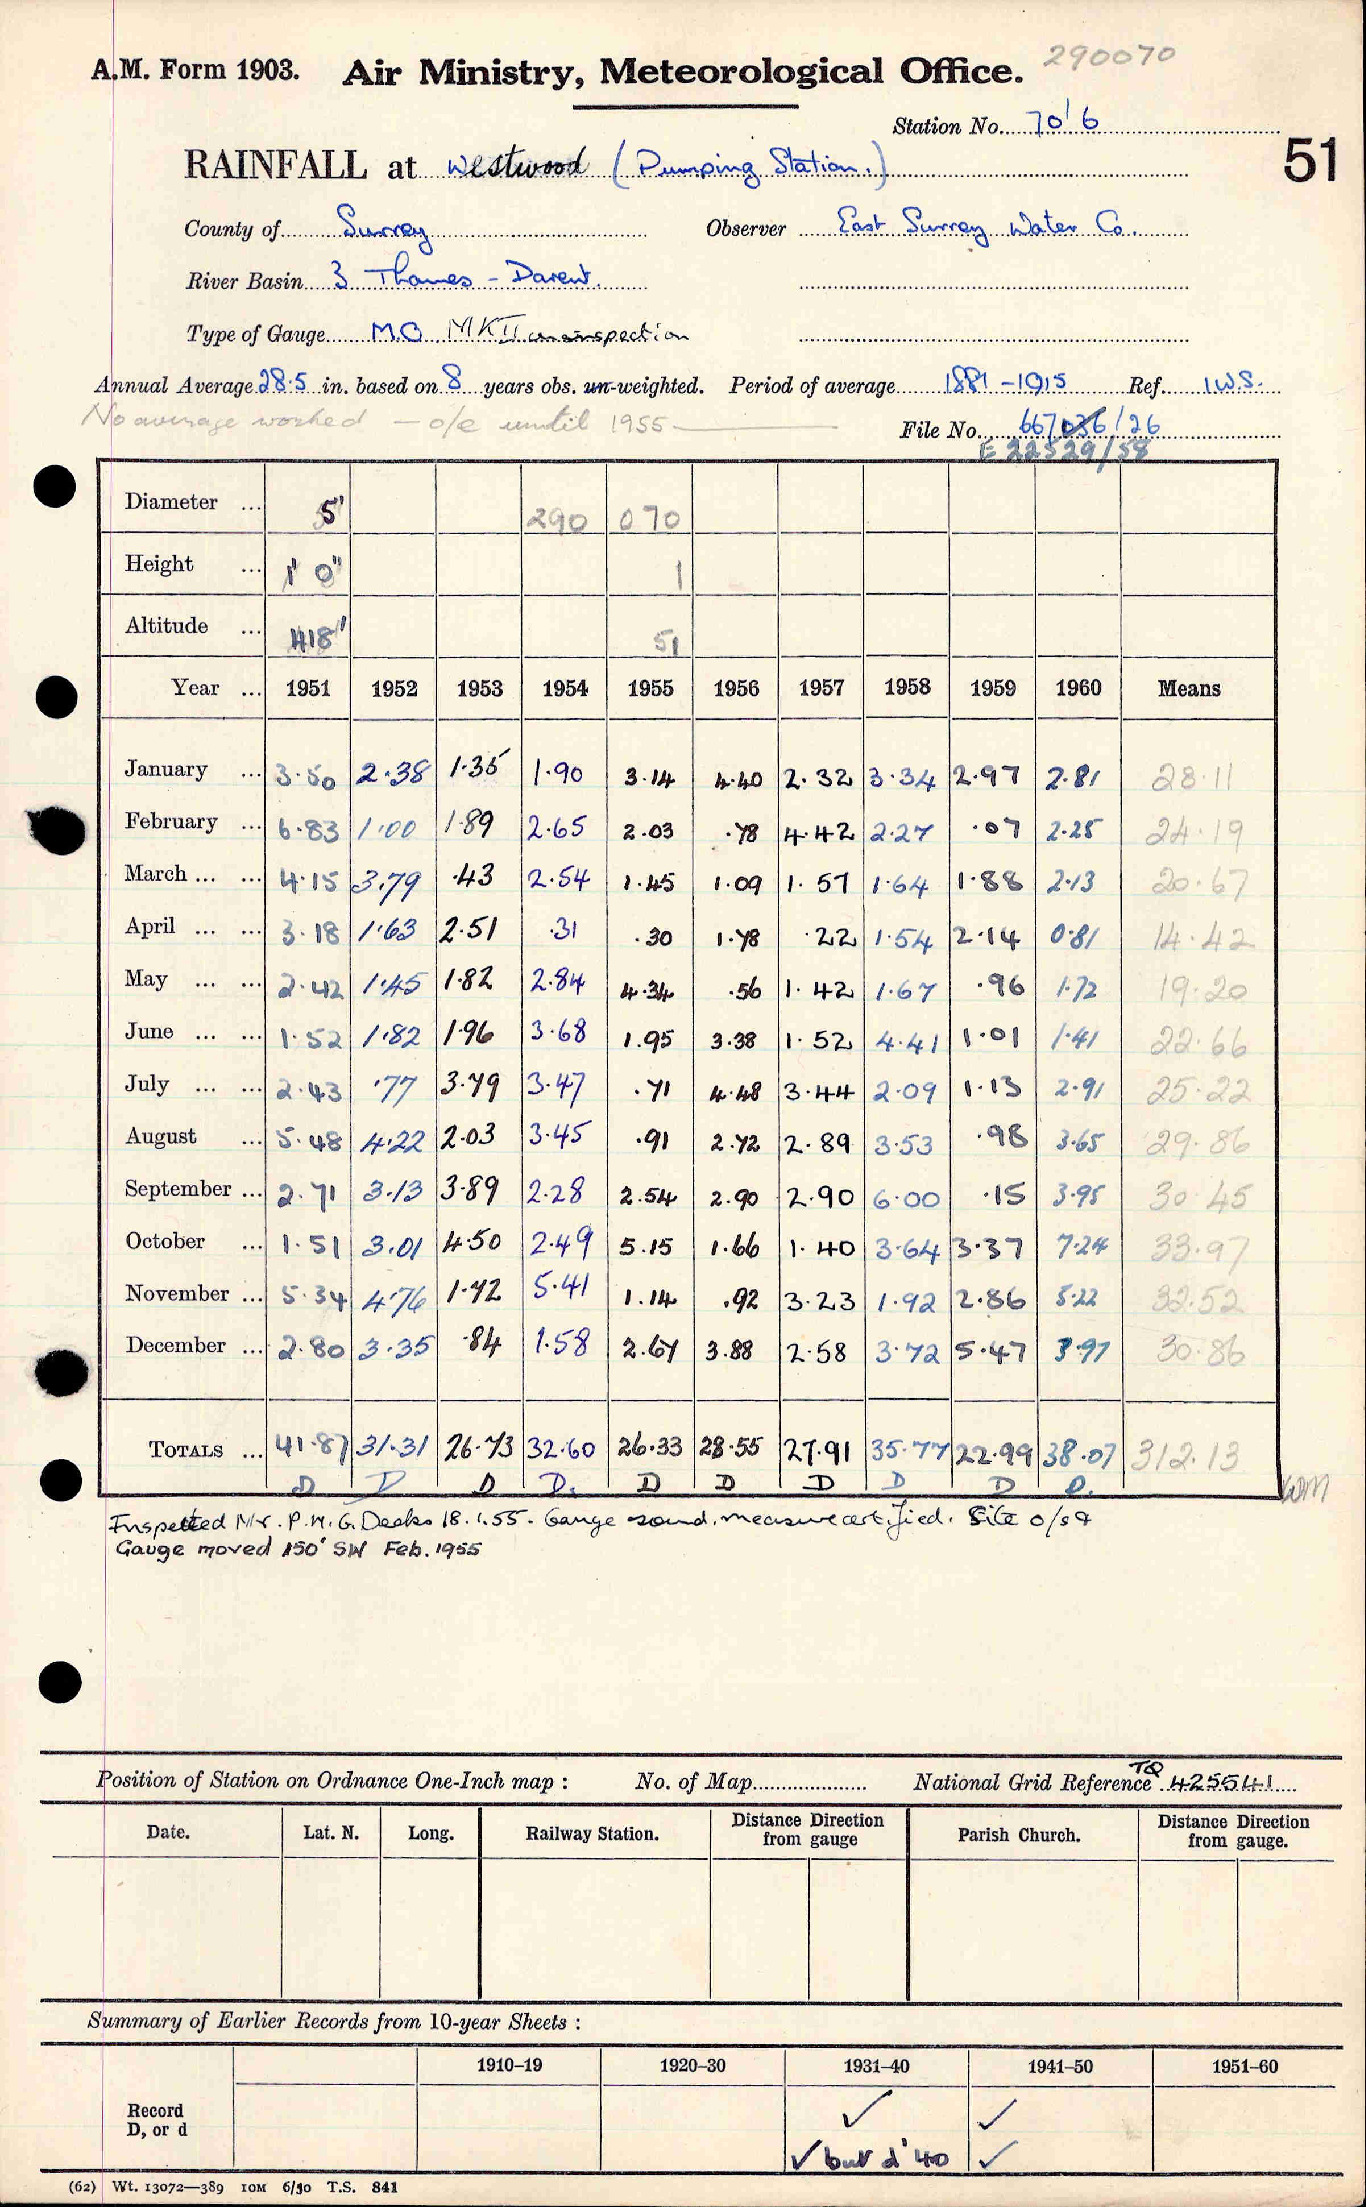 290070
A.M. Form 1903. Air Ministry, Meteorological Office.
Station No. 70'6
51
RAINFALL at Westwood (Pumping Station.)
County of Surrey Observer East Surrey Water Co.
River Basin 3 Thames - Darent.
Type of Gauge M.O MK II on inspection
Annual Average 28.5 in. based on 8 years obs. un-weighted. Period of average 1881-1915 Ref. I.W.S.
No average worked - o/e until 1955
File No. 667036/26
E 22529/58
Diameter ... 5" 290 070
Height ... 1' 0" 1
Altitude ... 418' 51
Year ... 1951 1952 1953 1954 1955 1956 1957 1958 1959 1960 Means
January ... 3.50 2.38 1.35 1.90 3.14 4.40 2.32 3.34 2.97 2.81 28.11
February ... 6.83 1.00 1.89 2.65 2.03 .78 4.42 2.27 .07 2.25 24.19
March ... ... 4.15 3.79 .43 2.54 1.45 1.09 1.57 1.64 1.88 2.13 20.67
April ... ... 3.18 1.63 2.51 .31 .30 1.78 .22 1.54 2.14 0.81 14.42
May ... ... 2.42 1.45 1.82 2.84 4.34 .56 1.42 1.67 .96 1.72 19.20
June ... ... 1.52 1.82 1.96 3.68 1.95 3.38 1.52 4.41 1.01 1.41 22.66
July ... ... 2.43 .77 3.79 3.47 .71 4.48 3.44 2.09 1.13 2.91 25.22
August ... 5.48 4.22 2.03 3.45 .91 2.72 2.89 3.53 .98 3.65 29.86
September ... 2.71 3.13 3.89 2.28 2.54 2.90 2.90 6.00 .15 3.95 30.45
October ... 1.51 3.01 4.50 2.49 5.15 1.66 1.40 3.64 3.37 7.24 33.97
November ... 5.34 4.76 1.72 5.41 1.14 .92 3.23 1.92 2.86 5.22 32.52
December ... 2.80 3.35 .84 1.58 2.67 3.88 2.58 3.72 5.47 3.97 30.86
TOTALS ... 41.87 31.31 26.73 32.60 26.33 28.55 27.91 35.77 22.99 38.07 312.13
D D D D. D D D D D D. WM
Inspected Mr. P.M.G. Deeks 18.1.55. Gauge sound, measure certified. Site o/s a
Gauge moved 150' SW Feb. 1955
Position of Station on Ordnance One-Inch map : No. of Map National Grid Reference TQ 425541
Date. Lat. N. Long. Railway Station. Distance Direction from gauge Parish Church. Distance Direction from gauge.
Summary of Earlier Records from 10-year Sheets :
1910–19 1920–30 1931–40 1941–50 1951–60
Record ✓ ✓
D, or d ✓ but d '40 ✓
(62) Wt. 13072—389 10M 6/50 T.S. 841